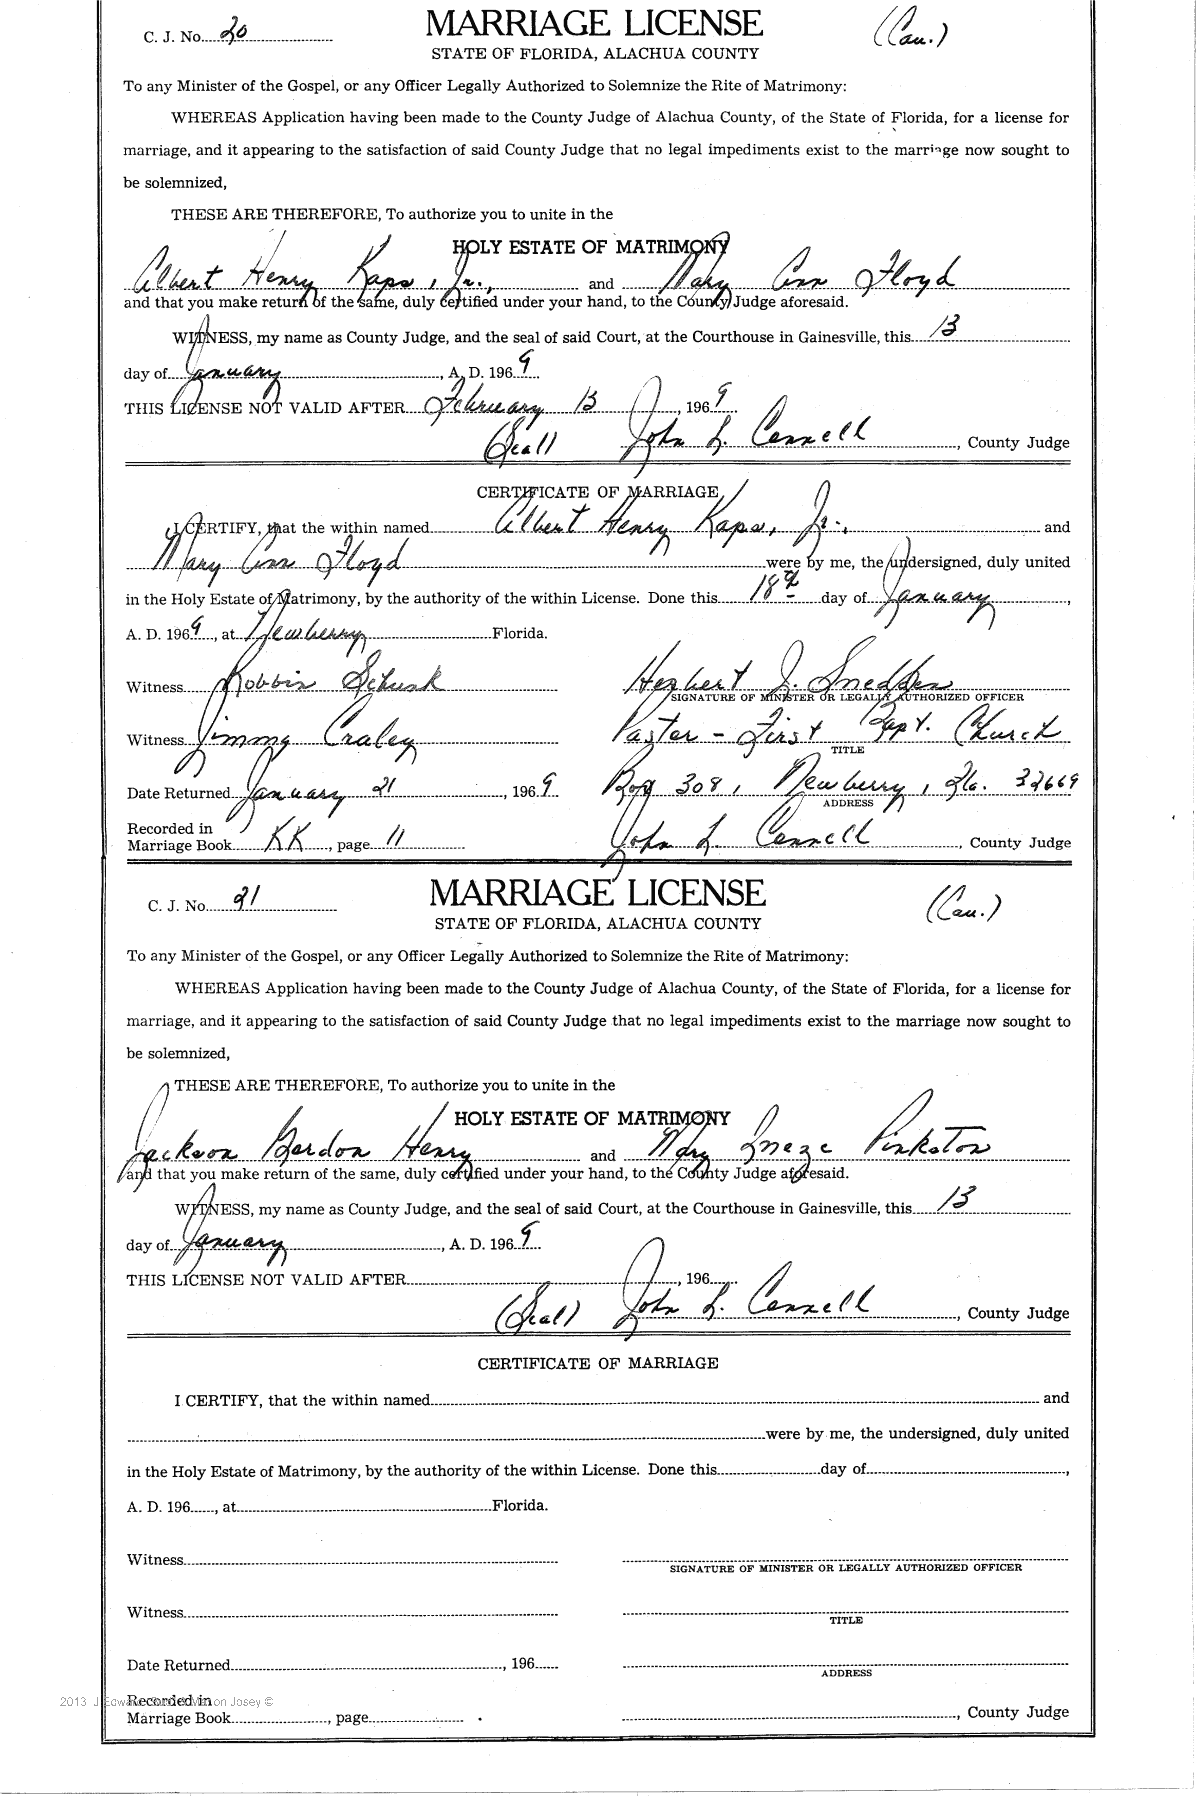 C. J. No. 20
MARRIAGE LICENSE
(Cau.)
STATE OF FLORIDA, ALACHUA COUNTY
To any Minister of the Gospel, or any Officer Legally Authorized to Solemnize the Rite of Matrimony:
WHEREAS Application having been made to the County Judge of Alachua County, of the State of Florida, for a license for
marriage, and it appearing to the satisfaction of said County Judge that no legal impediments exist to the marriage now sought to
be solemnized,
THESE ARE THEREFORE, To authorize you to unite in the
HOLY ESTATE OF MATRIMONY
Albert Henry Kaps, Jr., and Mary Ann Floyd
and that you make return of the same, duly certified under your hand, to the County Judge aforesaid.
WITNESS, my name as County Judge, and the seal of said Court, at the Courthouse in Gainesville, this 13
day of January, A. D. 1969
THIS LICENSE NOT VALID AFTER February 13, 1969
(Seal) John L. Connell, County Judge
CERTIFICATE OF MARRIAGE
I CERTIFY, that the within named Albert Henry Kaps, Jr., and
Mary Ann Floyd were by me, the undersigned, duly united
in the Holy Estate of Matrimony, by the authority of the within License. Done this 18th day of January,
A. D. 1969, at Newberry Florida.
Witness Robbin Herbert J. Snedden
SIGNATURE OF MINISTER OR LEGALLY AUTHORIZED OFFICER
Witness Jimmy Craley Pastor - First Bapt. Church
TITLE
Date Returned January 21, 1969 Box 308, Newberry, Fla. 32669
ADDRESS
Recorded in
Marriage Book KK, page 11 John L. Connell, County Judge
C. J. No. 21
MARRIAGE LICENSE
(Cau.)
STATE OF FLORIDA, ALACHUA COUNTY
To any Minister of the Gospel, or any Officer Legally Authorized to Solemnize the Rite of Matrimony:
WHEREAS Application having been made to the County Judge of Alachua County, of the State of Florida, for a license for
marriage, and it appearing to the satisfaction of said County Judge that no legal impediments exist to the marriage now sought to
be solemnized,
THESE ARE THEREFORE, To authorize you to unite in the
HOLY ESTATE OF MATRIMONY
Jackson Gordon Henry and Mary Ineze Pinkston
and that you make return of the same, duly certified under your hand, to the County Judge aforesaid.
WITNESS, my name as County Judge, and the seal of said Court, at the Courthouse in Gainesville, this 13
day of January, A. D. 1969
THIS LICENSE NOT VALID AFTER, 196
(Seal) John L. Connell, County Judge
CERTIFICATE OF MARRIAGE
I CERTIFY, that the within named and
were by me, the undersigned, duly united
in the Holy Estate of Matrimony, by the authority of the within License. Done this day of,
A. D. 196, at Florida.
Witness
SIGNATURE OF MINISTER OR LEGALLY AUTHORIZED OFFICER
Witness
TITLE
Date Returned, 196
ADDRESS
Recorded in
2013 J Josey ©
Marriage Book, page, County Judge